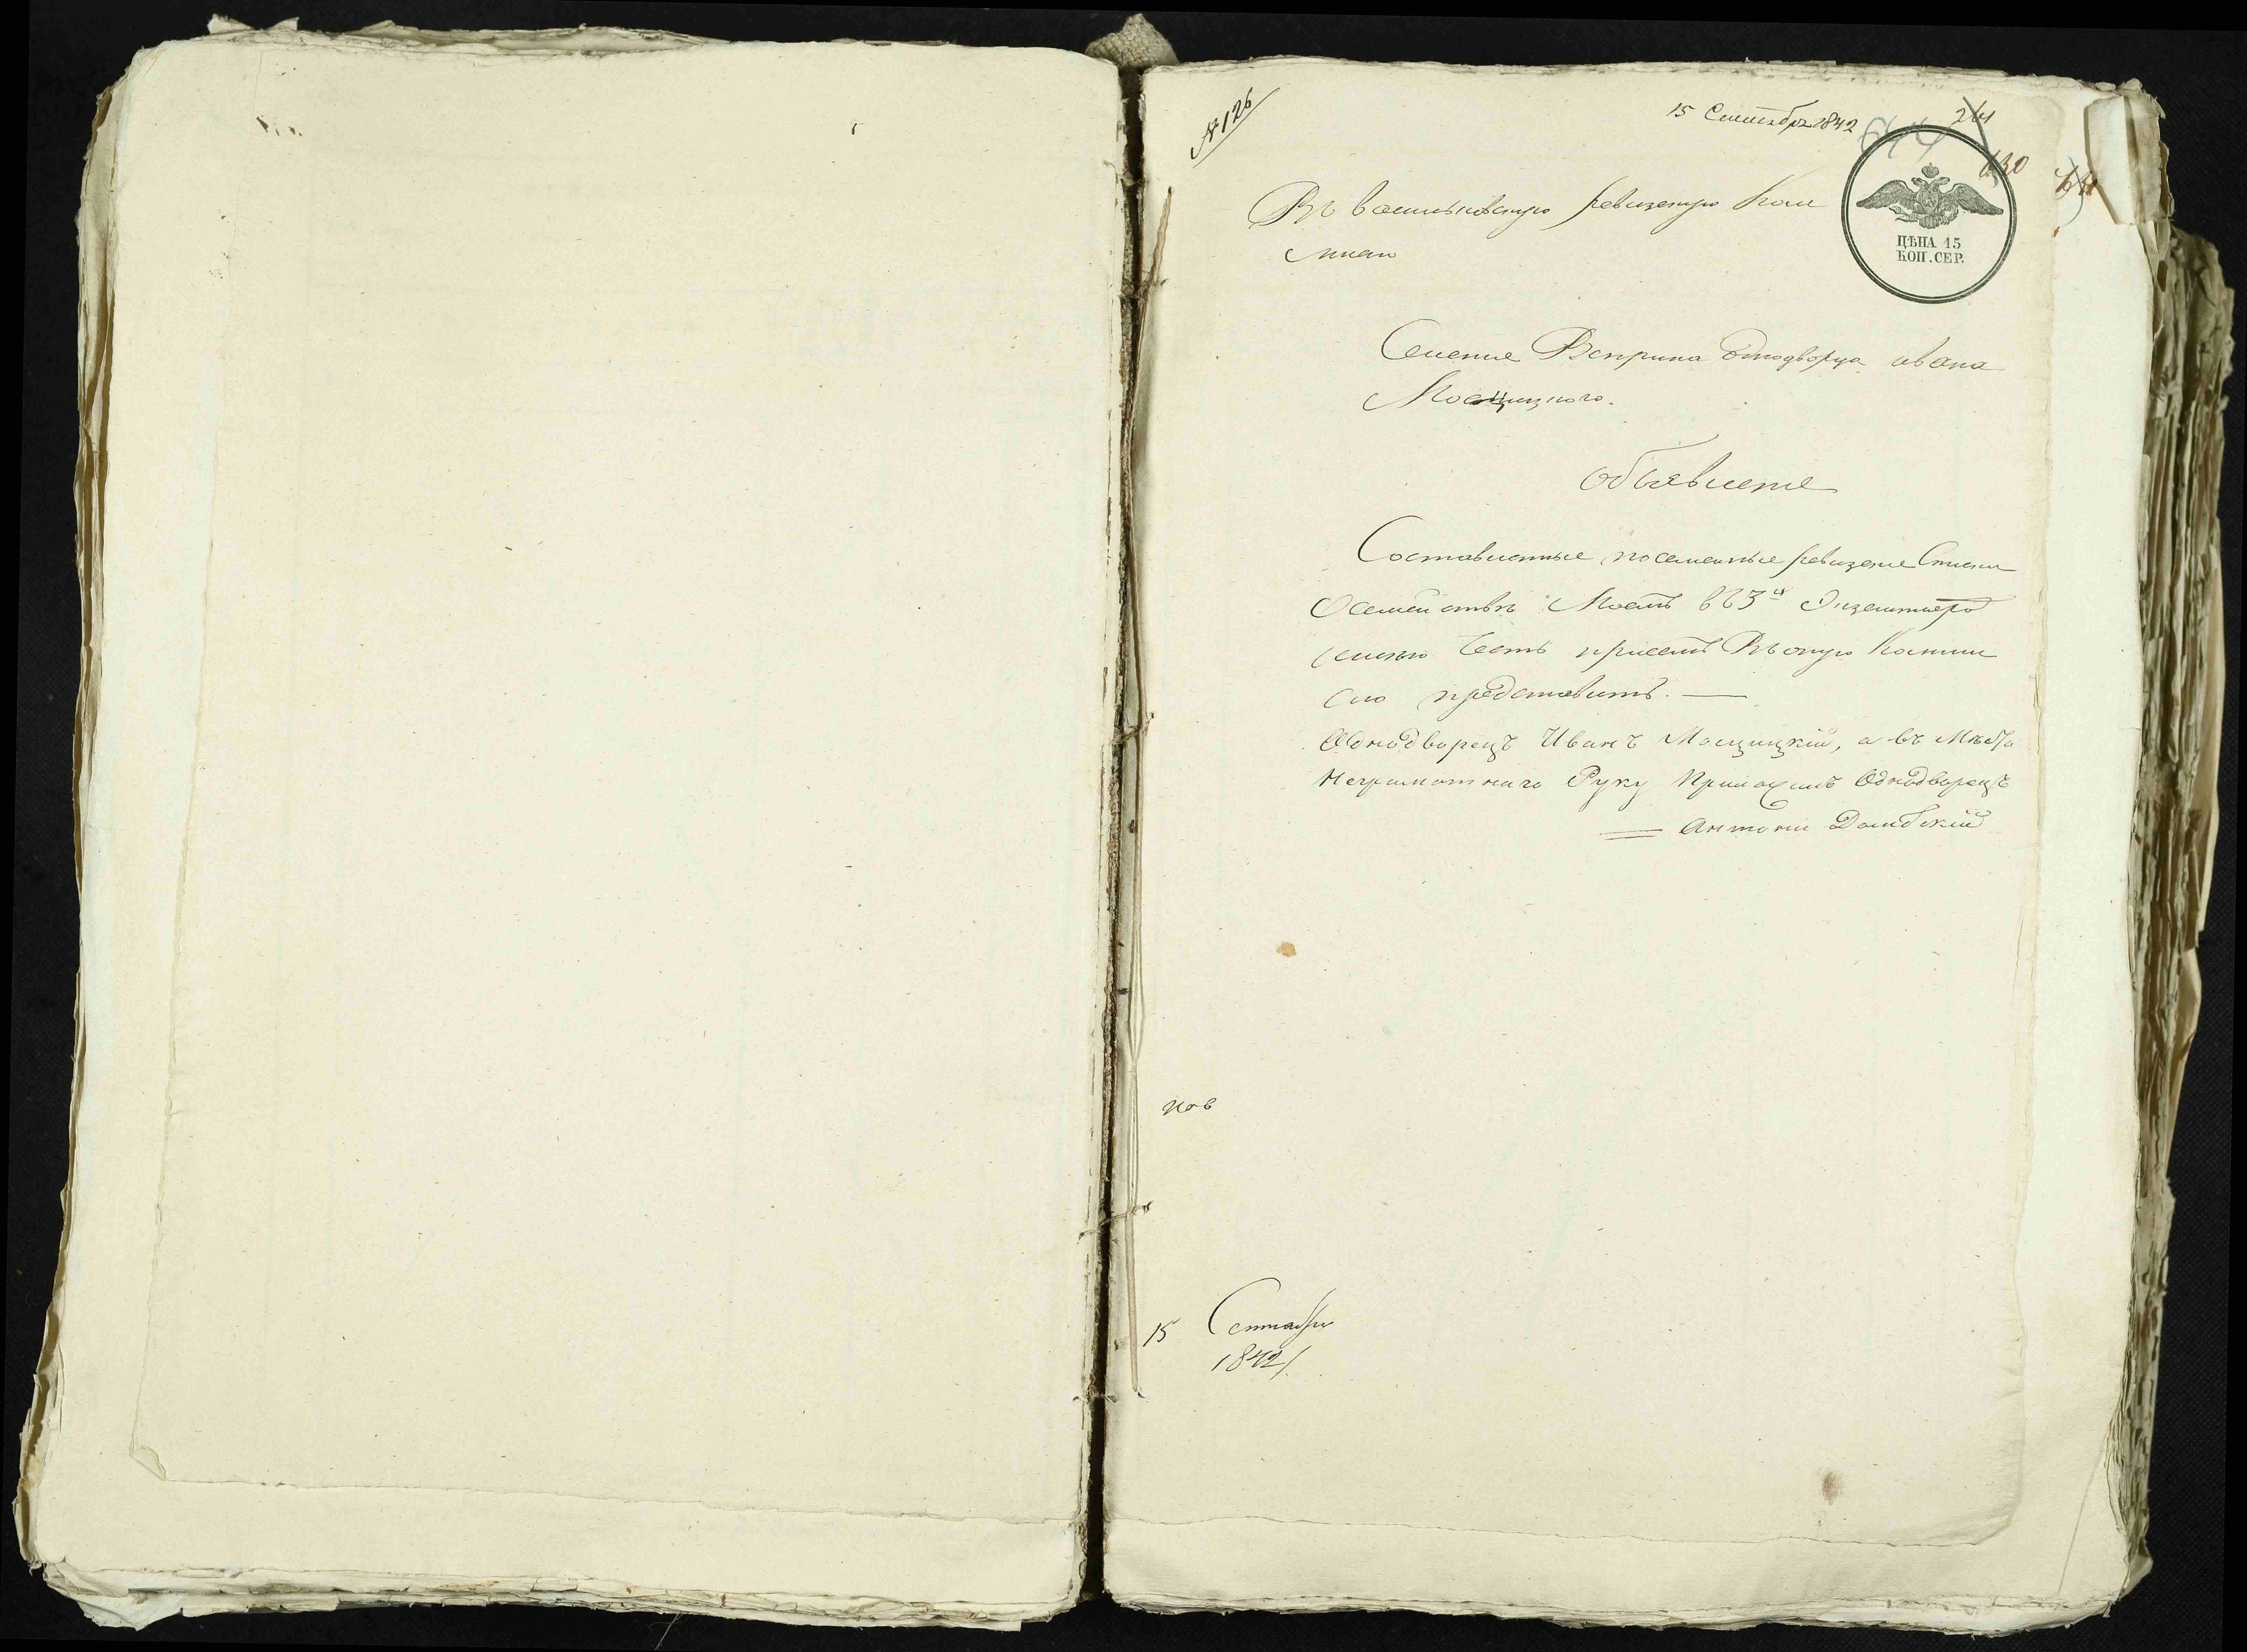 № 126
15 Сентября 1842
264
630
ЦѢНА 15
КОП. СЕР.
Въ васильковскую ревизскую Ком
мисию
Селение Веприка Однодворца ивана
Мосцицкого.
объявление
Составленные посемейные ревизские Списки
О семействе Моемъ въ 3х Экземпляро
имею Честь присемъ Въ оную Комми
сию представить. —
Однодворецъ Иванъ Мосцицкій, а въ Место
Неграмотнаго Руку Приложилъ Однодворецъ
Антоній Домбскій
15 Сентября
1842